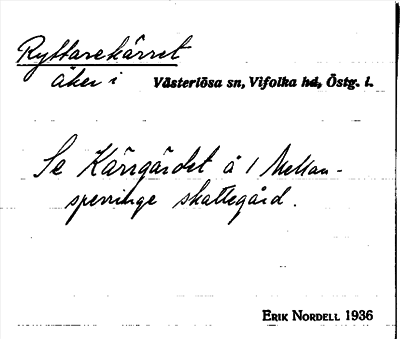 Ryttarekärret
åker i Västerlösa sn, Vifolka hd, Östg. l.
Se Kärrgärdet å 1 Mellan-
sperringe skattegård.
ERIK NORDELL 1936